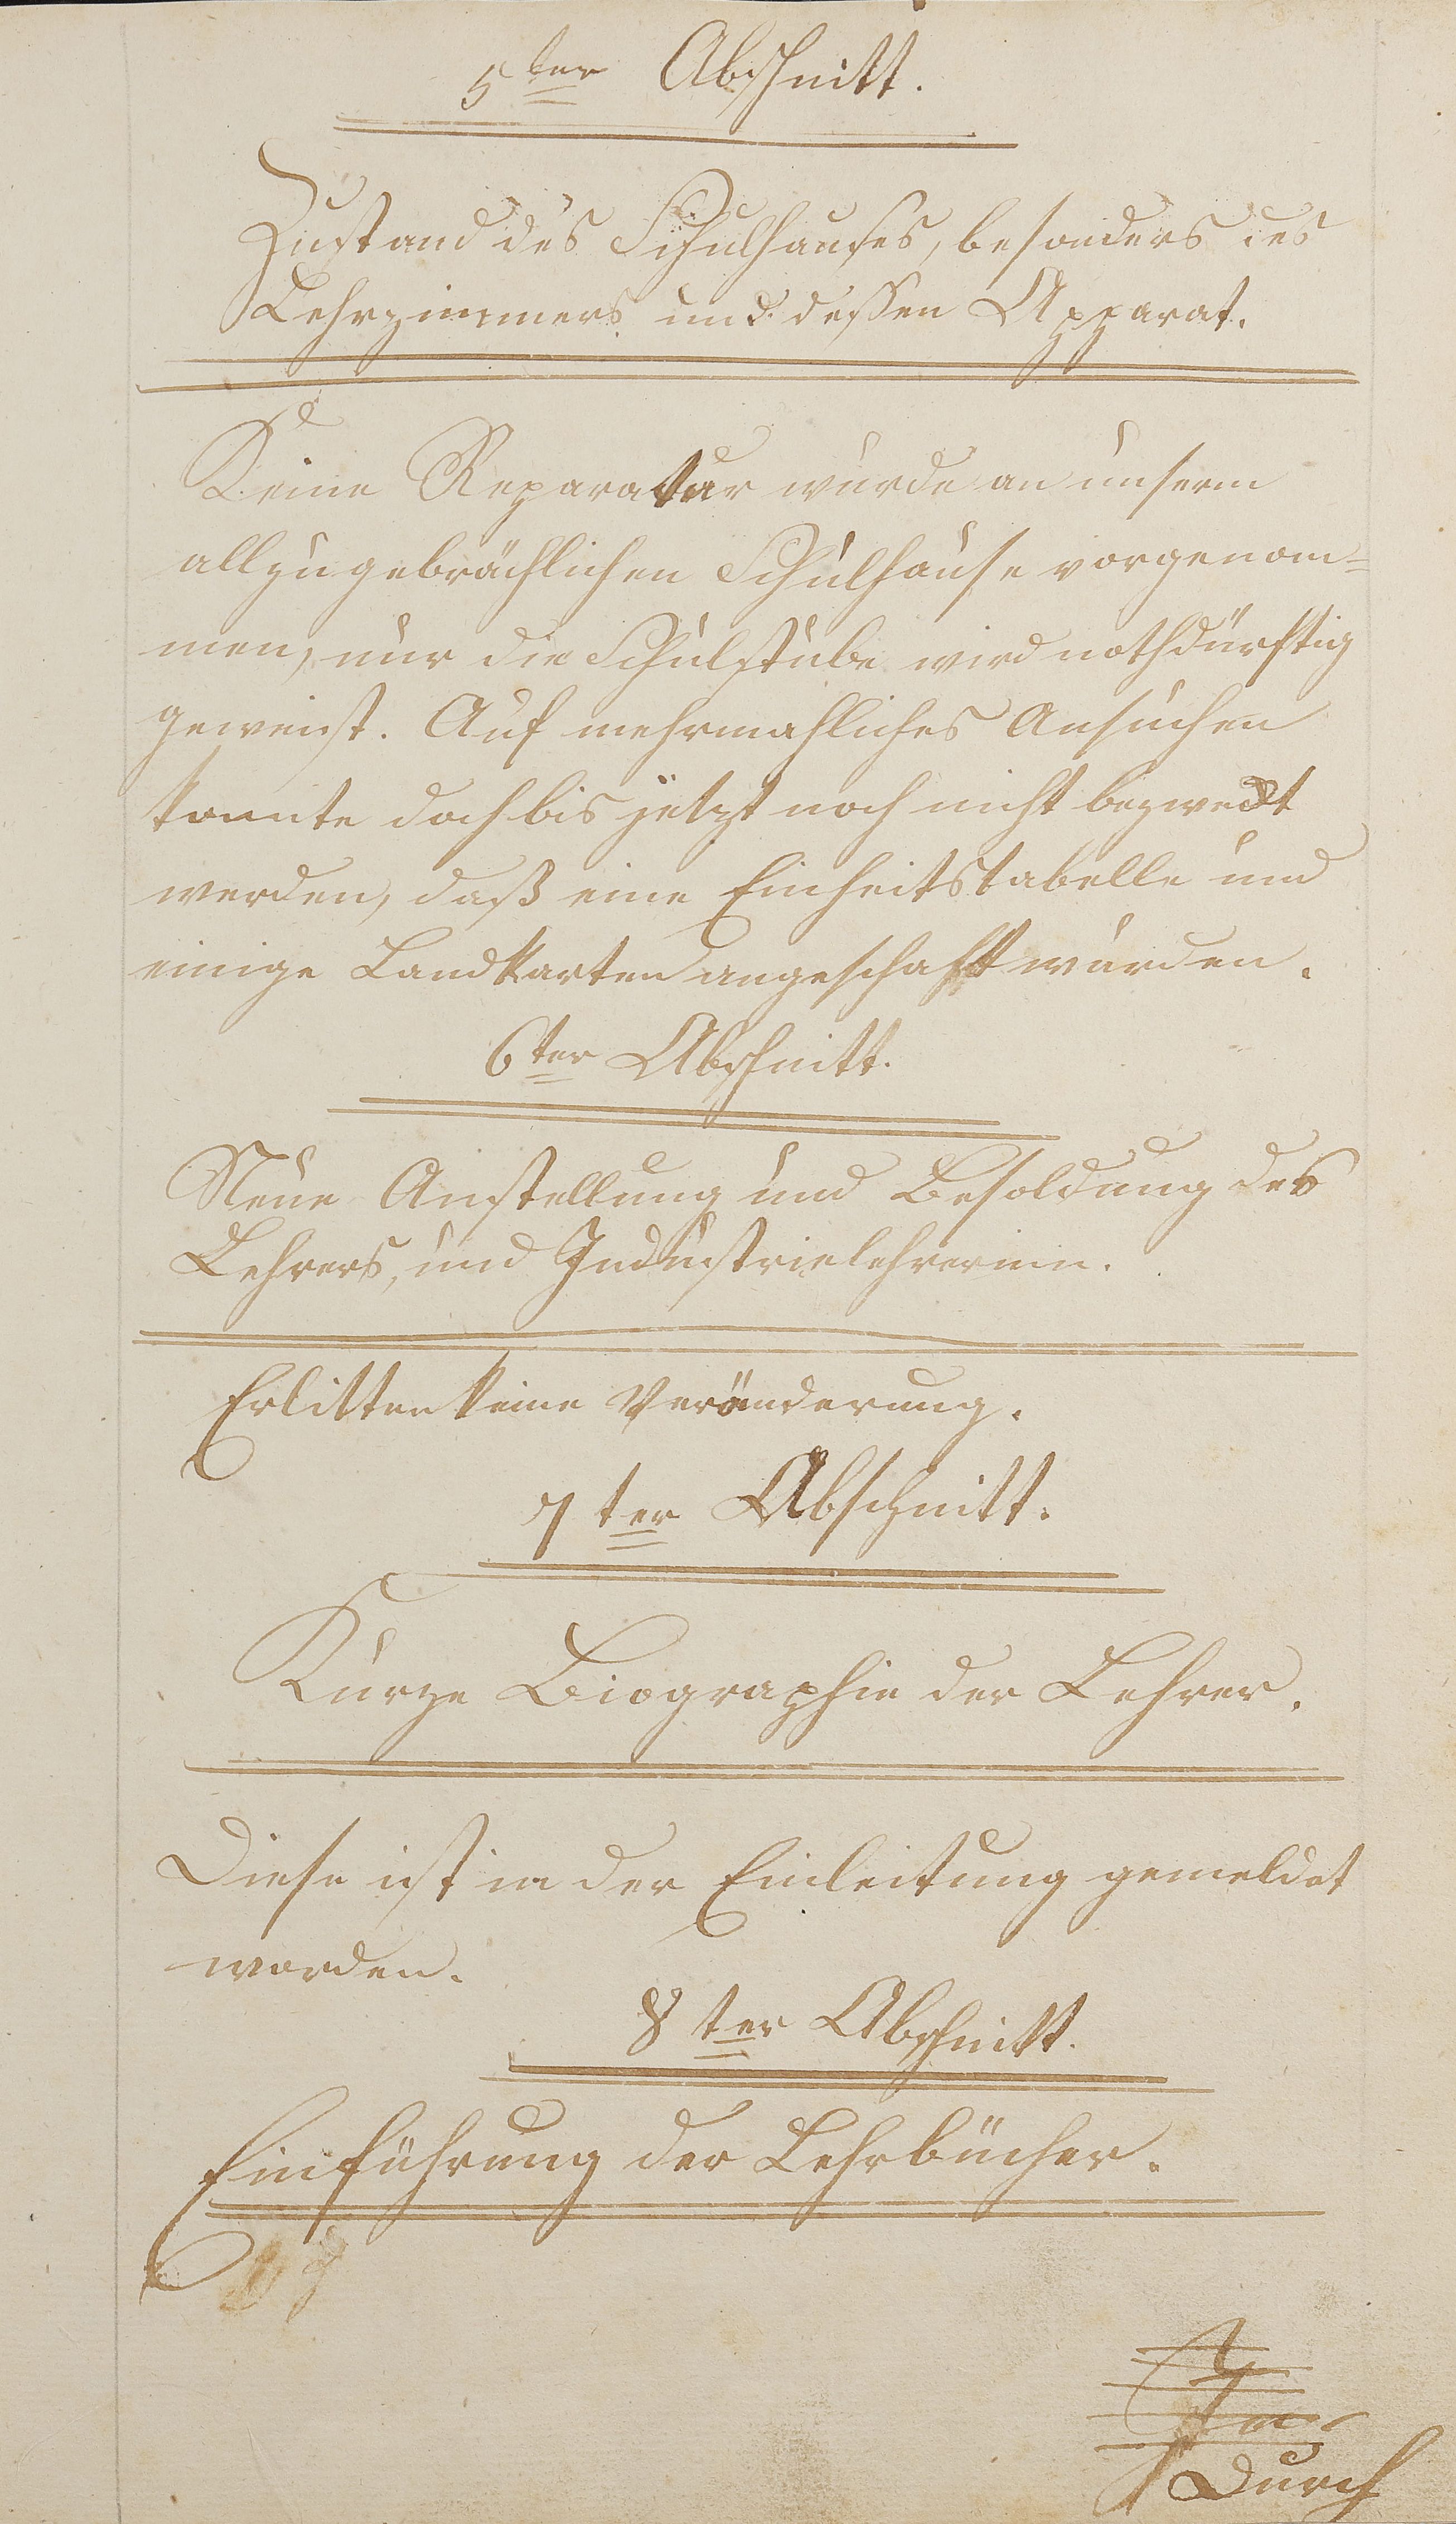 5ter Abschnitt.
Zustand des Schulhauses, besonders des
Lehrzimmers und dessen Apparat.
Keine Reparatur wurde an unserm
allzugebrächlichen Schulhause vorgenom=
men, nur die Schulstube wird nothdürftig
geweißt. Auf mehrmahliches Ansuchen
konnte doch bis jetzt noch nicht bezweckt
werden, daß eine Einheitstabelle und
einige Landkarten angeschaft wurden.
6ter Abschnitt.
Neue Anstellung und Besoldung des
Lehrers, und Industrielehrerinn.
Erlitten keine Veränderung.
7ter Abschnitt.
Kurze Biographie der Lehrer.
Diese ist in der Einleitung gemeldet
worden.
8ter Abschnitt.
Einführung der Lehrbücher.
Durch